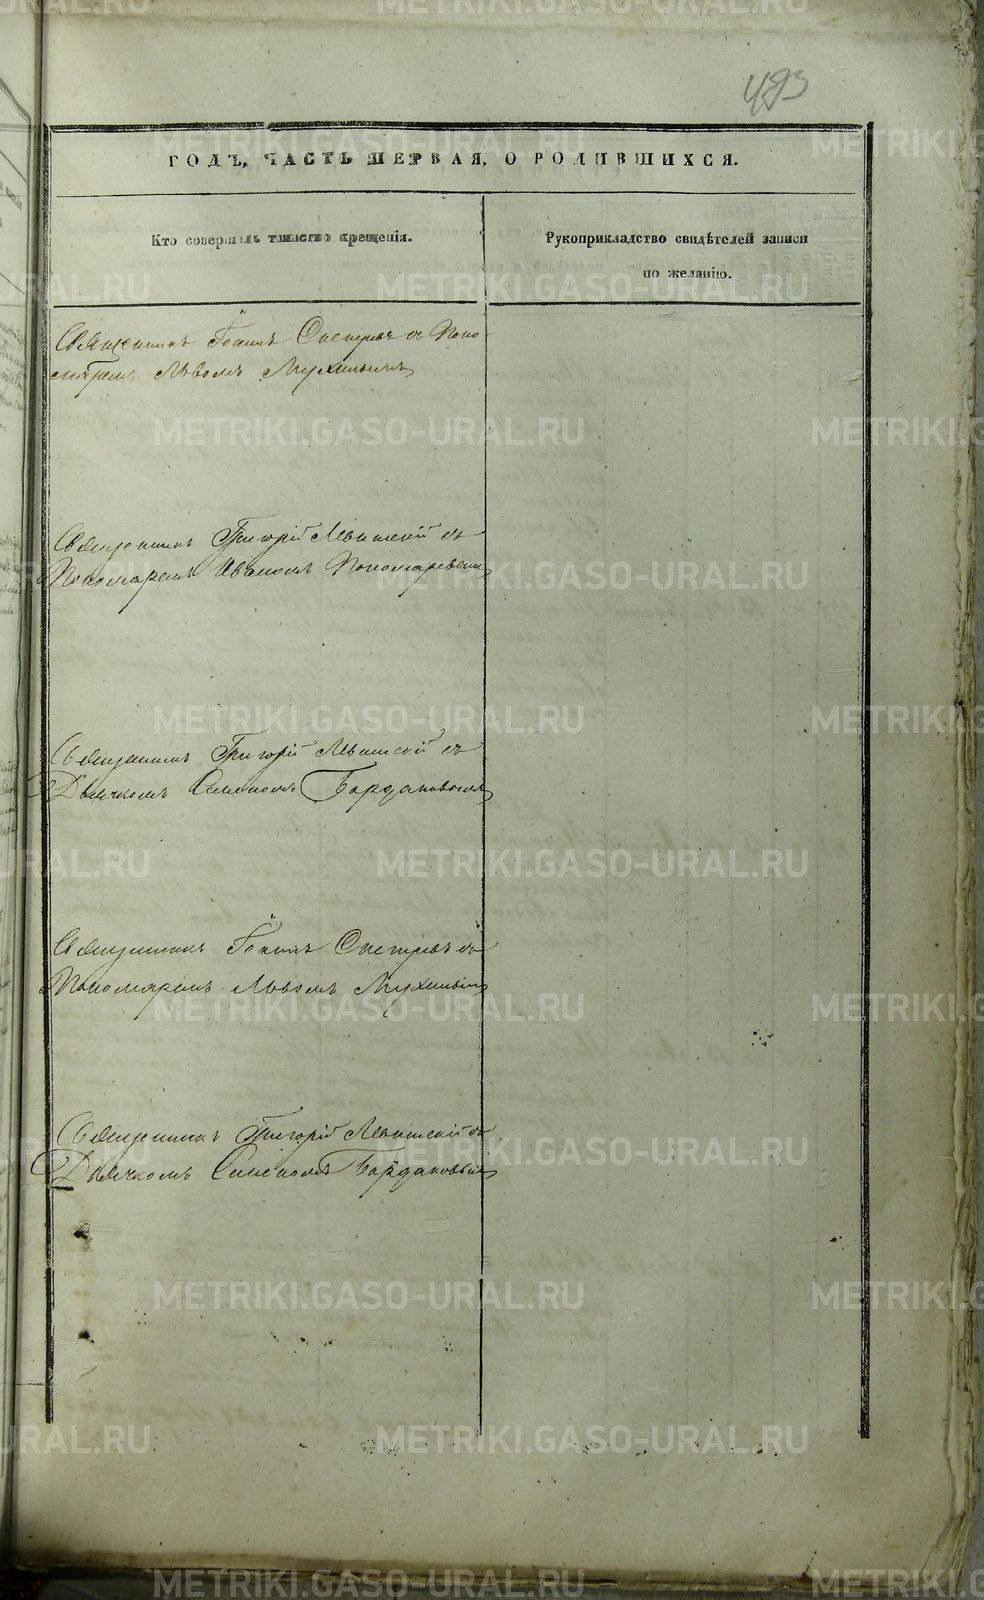 493
ГОДЪ, ЧАСТЬ ПЕРВАЯ, О РОДИВШИХСЯ.
Кто совершалъ таинство крещенія.
Рукоприкладство свидѣтелей записи
по желанію.
Священникъ Іоаннъ съ Поно-
маремъ Львомъ Мухинымъ
Священникъ Григорій Левитскій съ
Пономаремъ Иваномъ Пономаревымъ
Священникъ Григорій Левитскій съ
Дьячкомъ Семеномъ Бардаковымъ
Священникъ Іоаннъ съ
Пономаремъ Львомъ Мухинымъ
Священникъ Григорій Левитскій съ
Дьячкомъ Семеномъ Бардаковымъ
METRIKI.GASO-URAL.RU